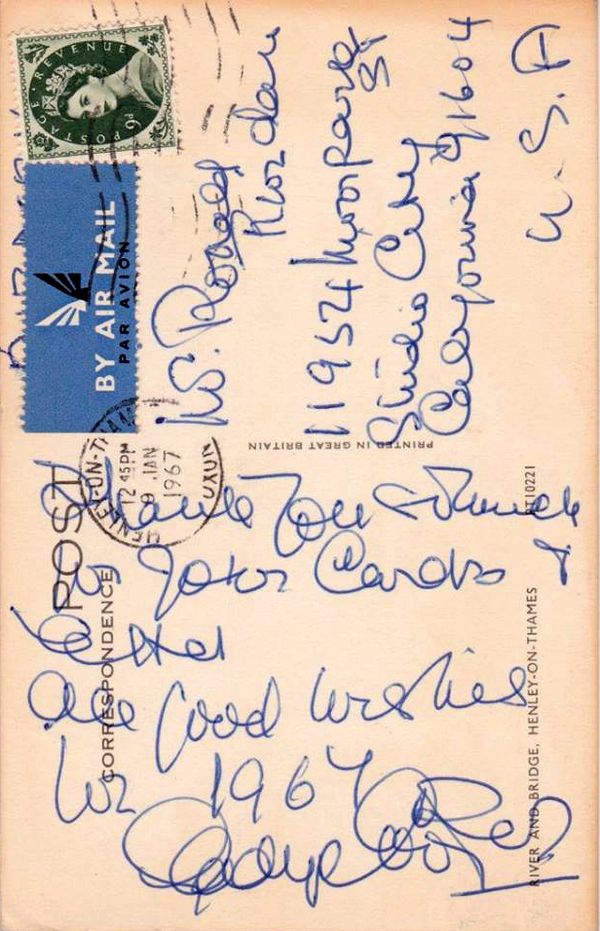 POST
CORRESPONDENCE
Thank you so much
for your Cards &
letter
all good wishes
for 1967
Gladys Cooper
RIVER AND BRIDGE, HENLEY-ON-THAMES
PT10221
PRINTED IN GREAT BRITAIN
HENLEY-ON-THAMES
12 45PM
9 JAN
1967
OXON
BY AIR MAIL
PAR AVION
POSTAGE REVENUE
9D
Ronald
Riordan
11954 Moorpark
St
Studio City
California 91604
U.S.A